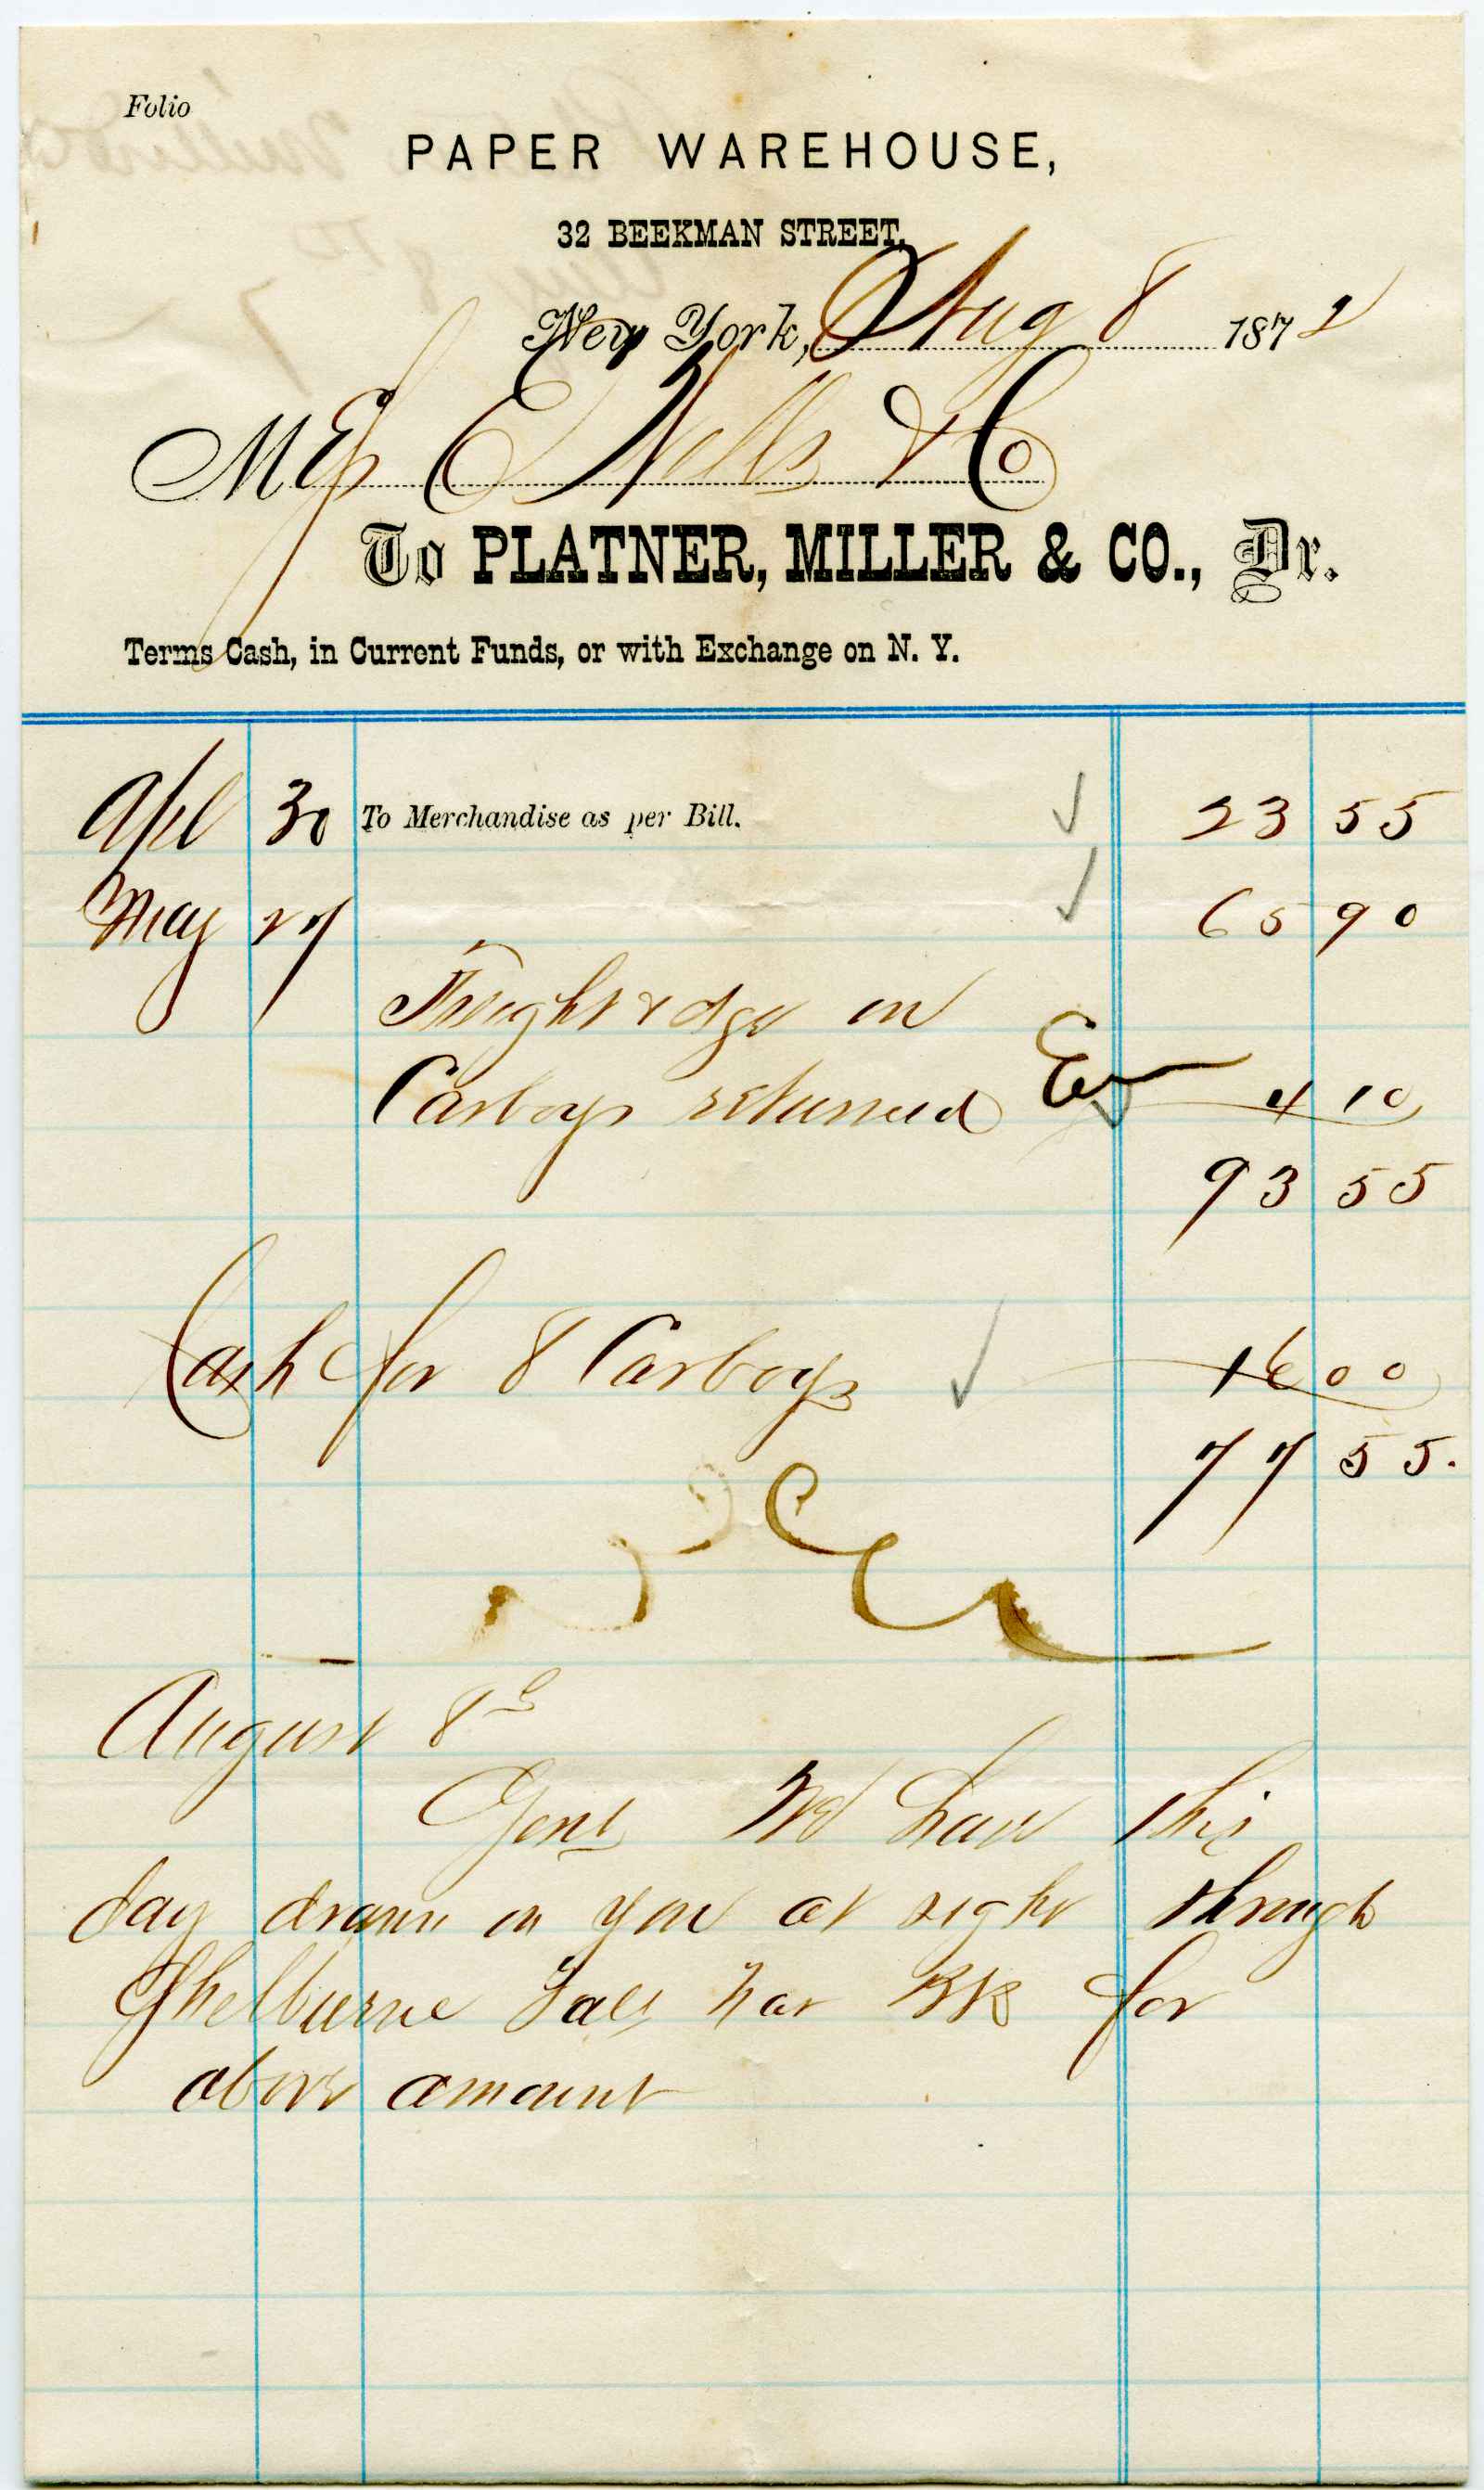 Folio
PAPER WAREHOUSE,
32 BEEKMAN STREET,
New York, Aug 8 1872
Mess E Wells & Co
To PLATNER, MILLER & CO., Dr.
Terms Cash, in Current Funds, or with Exchange on N. Y.
Apl 30 To Merchandise as per Bill. 23 55
May 27 65 90
Freight & dge on
Carboys returned 4 10
93 55
Cash for 8 Carboys 16 00
77 55.
August 8
Gents We have this
day drawn on you at sight through
Shelburne Falls Nat Bk for
above amount